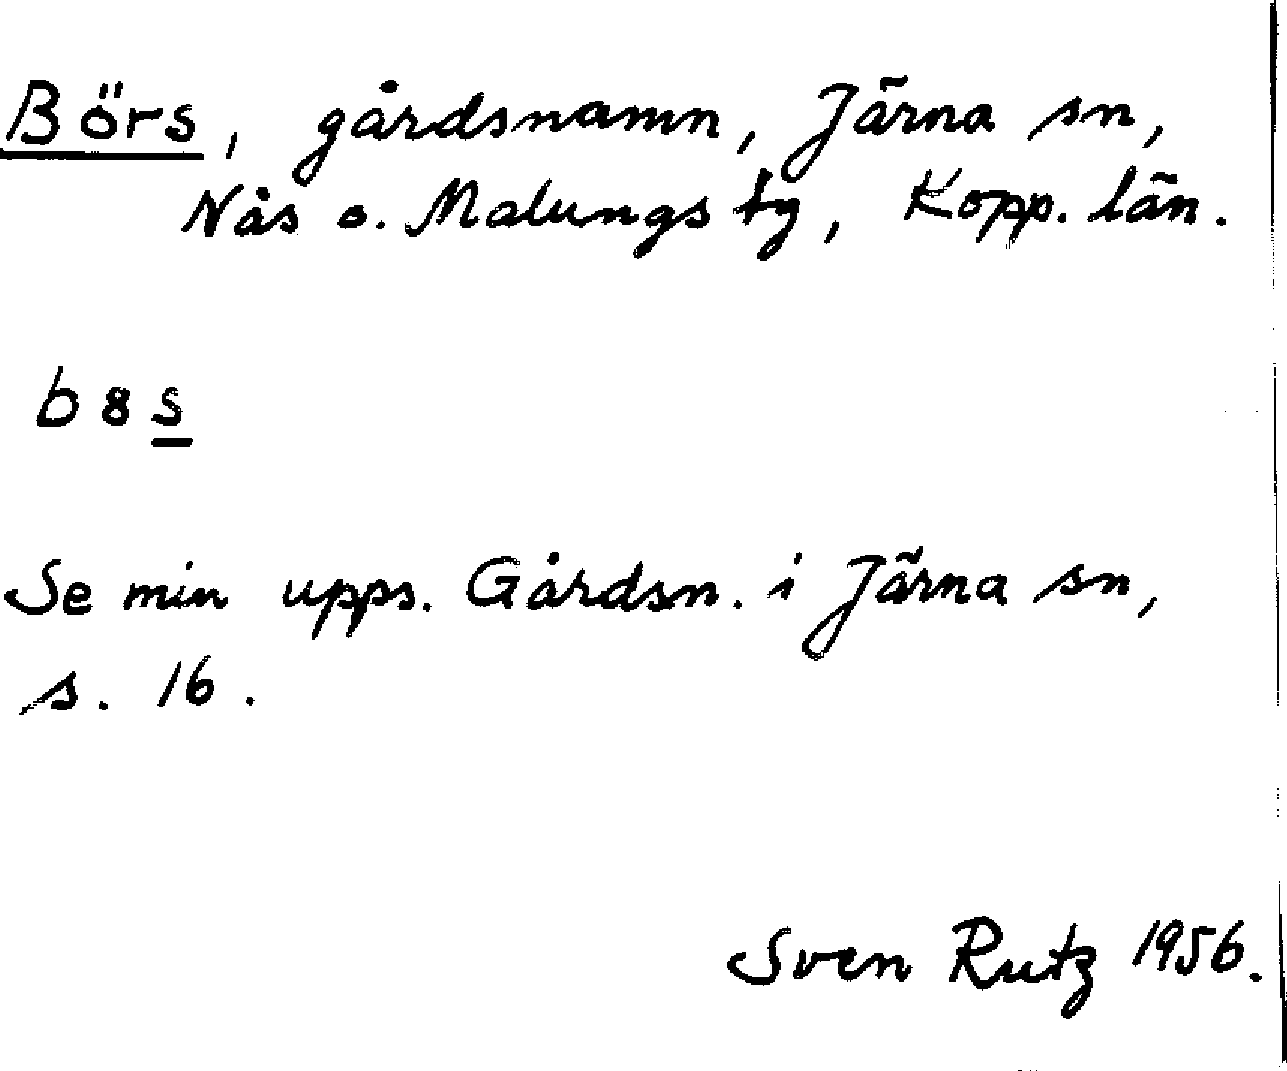 Börs, gårdsnamn, Järna sn,
Nås o. Malungs tg, Kopp. län.
b8s
Se min upps. Gårdsn. i Järna sn,
s. 16.
Sven Rutz 1956.